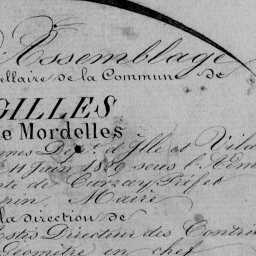 Assemblage
ellaire de la Commune de
GILLES
e Mordelles
Dép.t d'Ille et Vila
11 Juin 18 9 sous l'Adm
te de Curzay Préfet
nin, Maire
la direction de
Directeur des Contri
Géomètre en chef